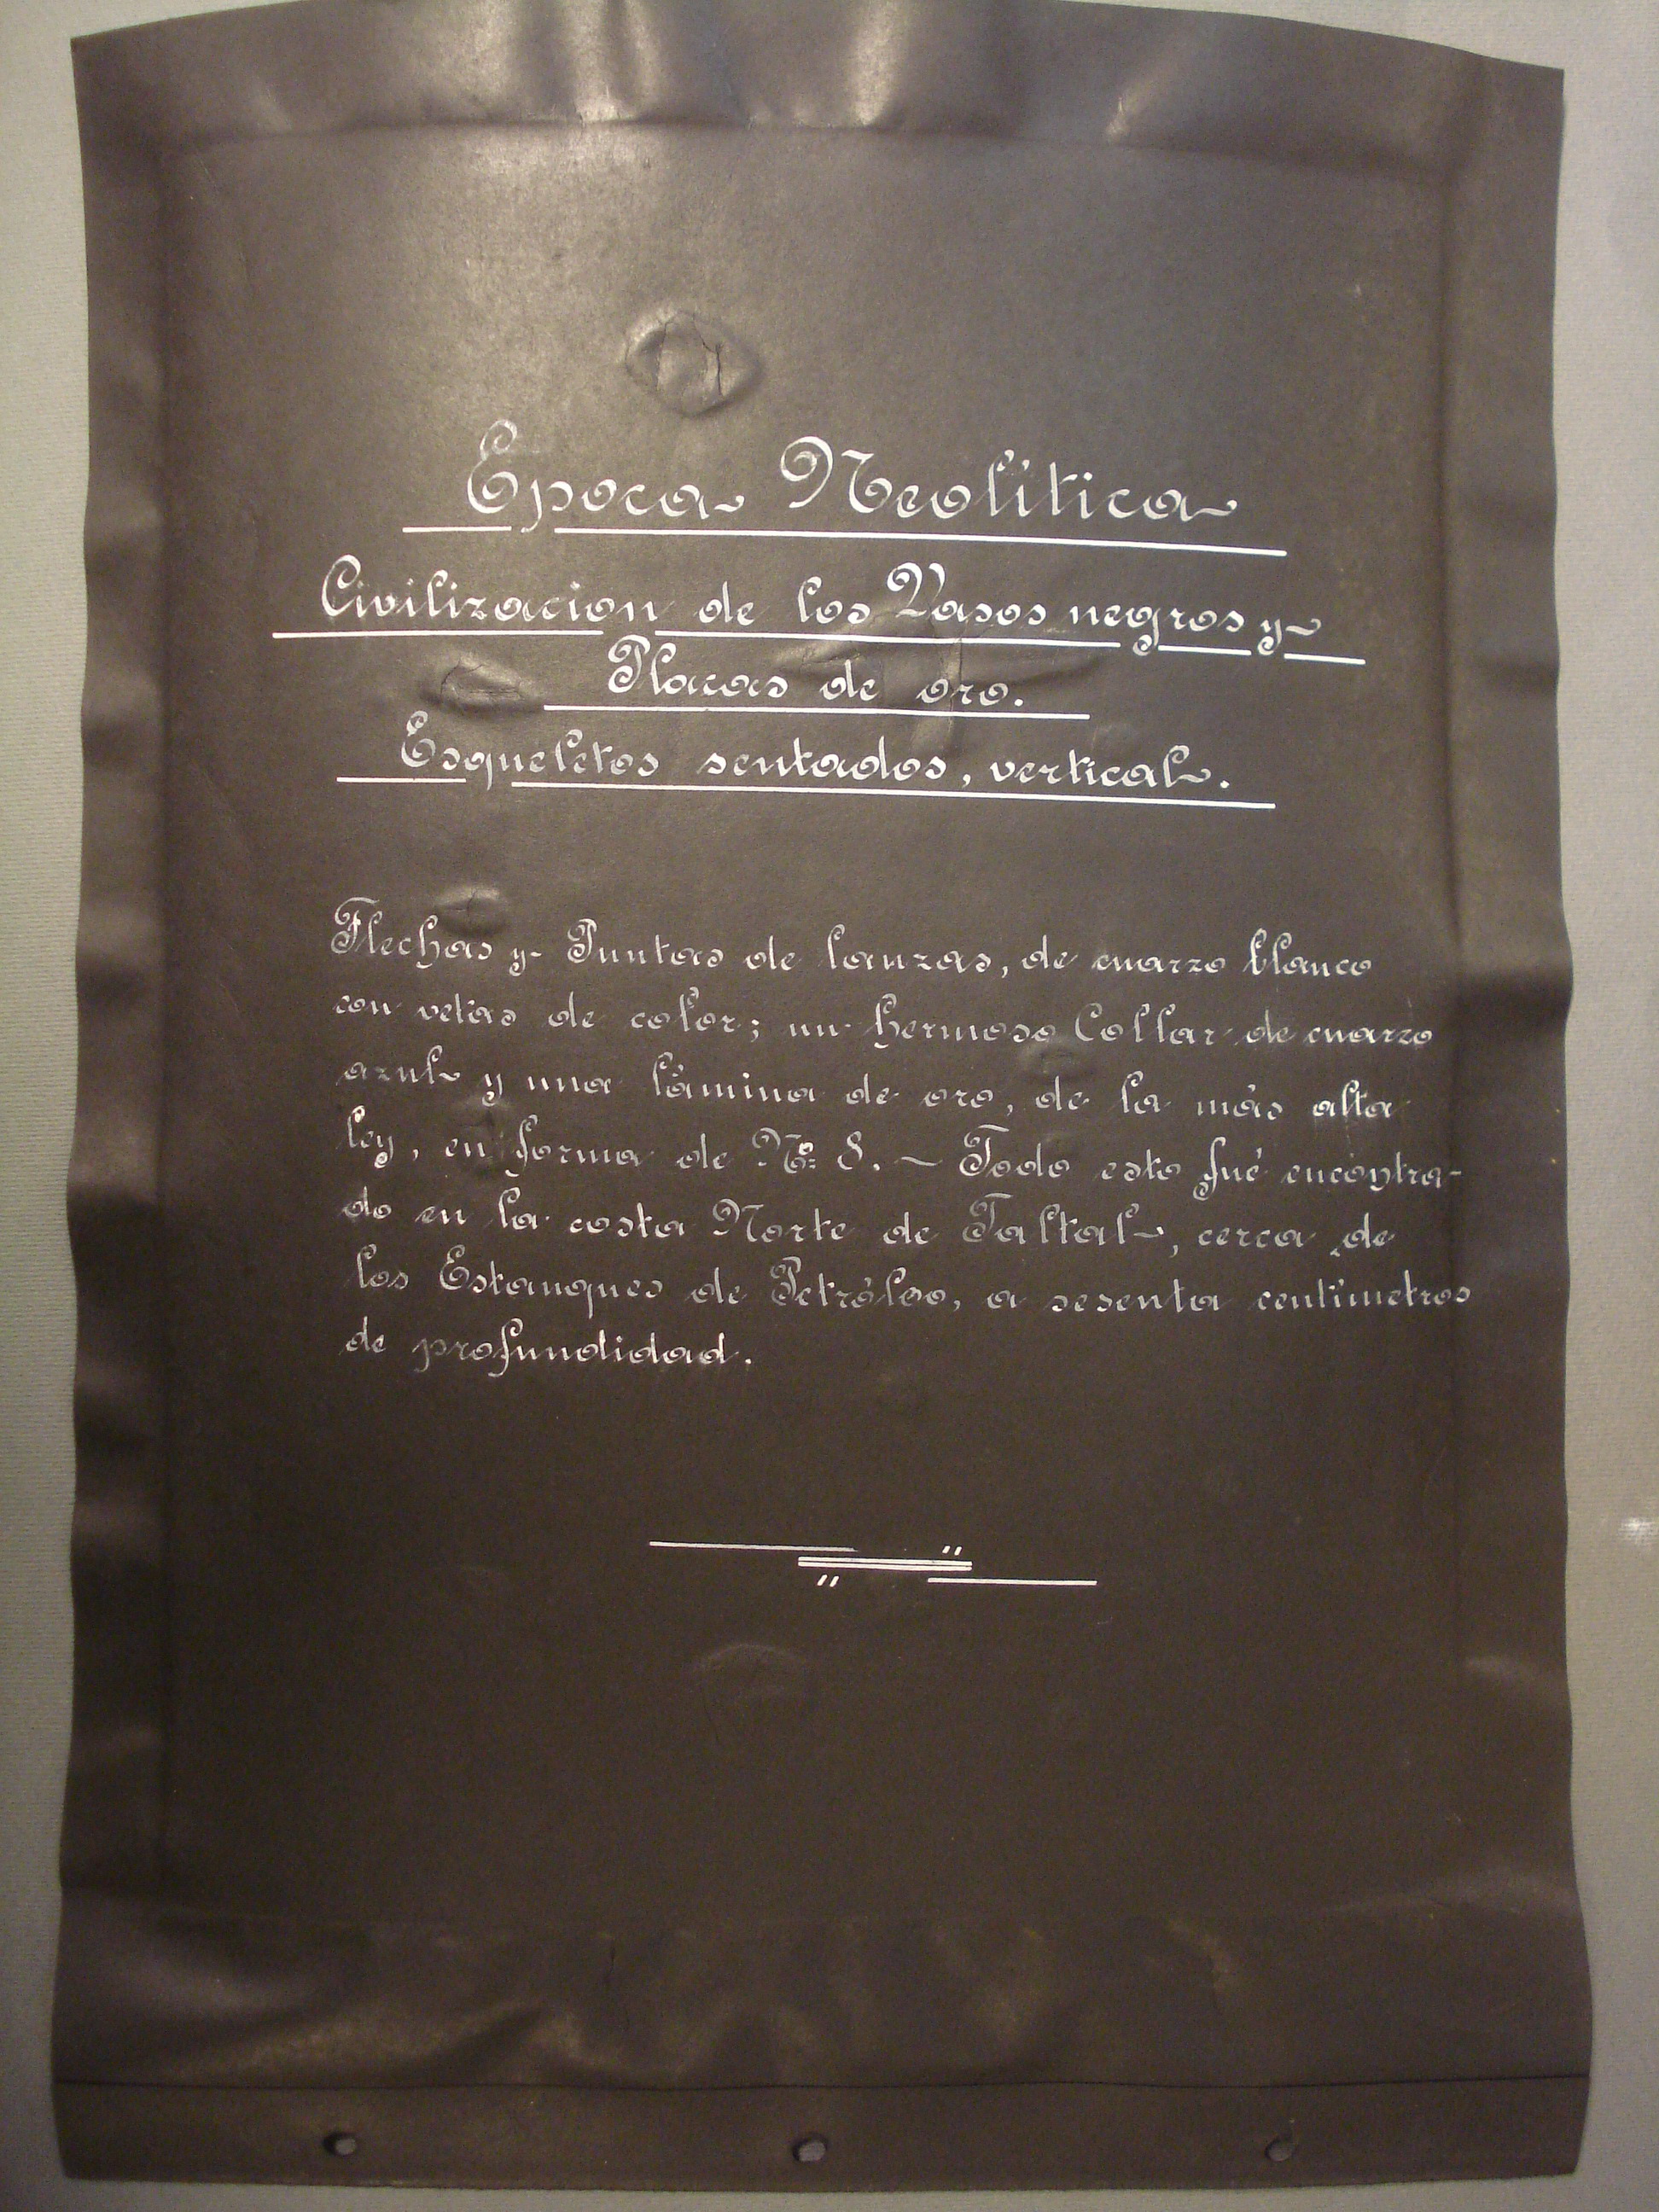 Epoca Neolítica
Civilizacion de los Vasos negros y
Placas de oro.
Esqueletos sentados, vertical.
Flechas y Puntas de lanzas, de cuarzo blanco
con vetas de color; un hermoso Collar de cuarzo
azul y una lámina de oro, de la más alta
ley, en forma de Nº 8. — Todo esto fué encontra-
do en la costa Norte de Taltal, cerca de
los Estanques de Petróleo, a sesenta centímetros
de profundidad.